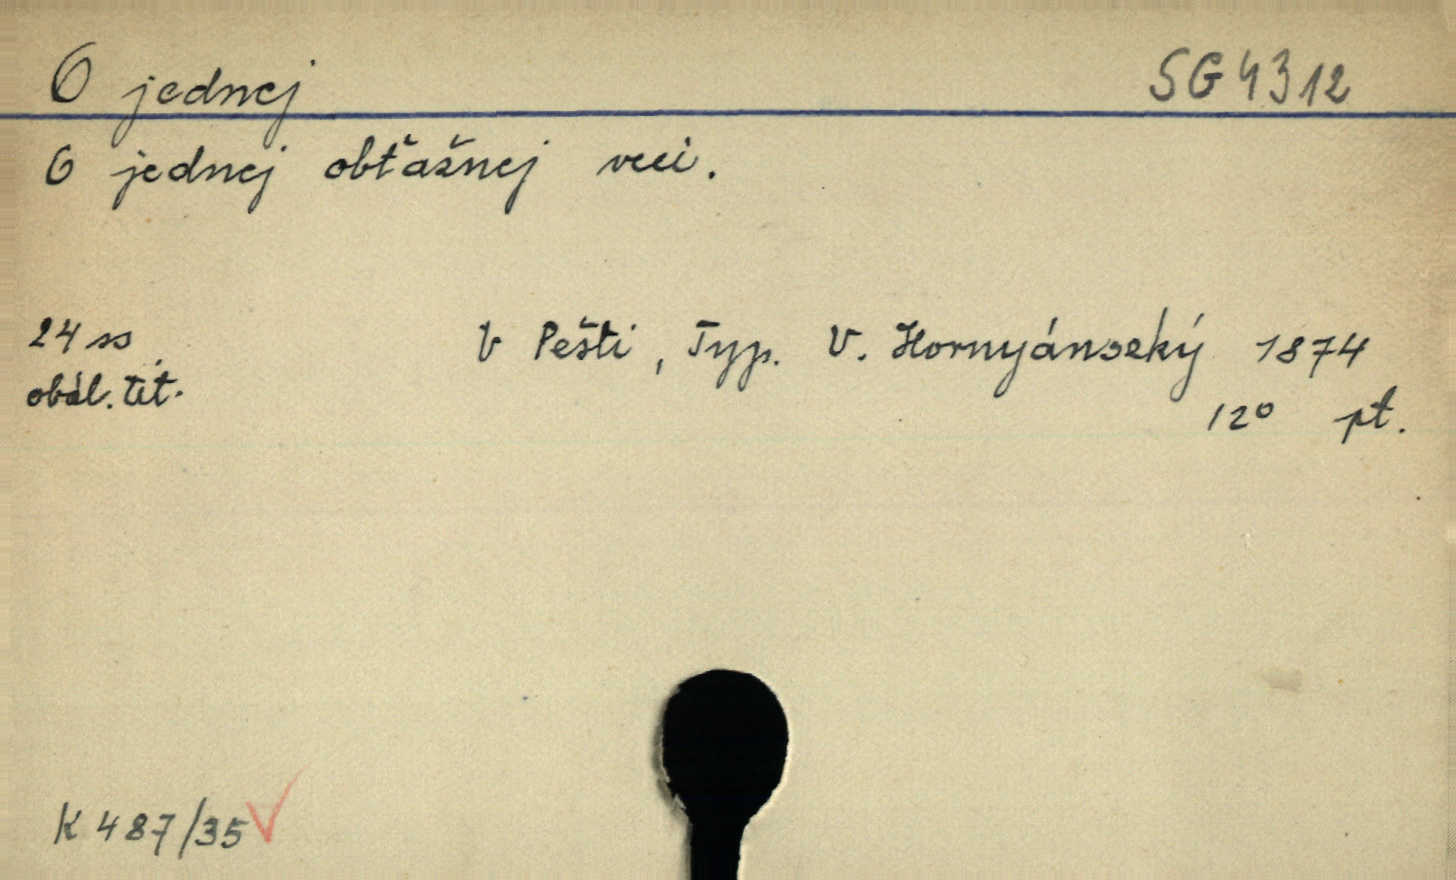 O jednej
SG 4312
O jednej obťažnej veci.
24 ss
V Pešti, Typ. V. Hornyánseký 1874
obál. tit.
12° pt.
K 487/35